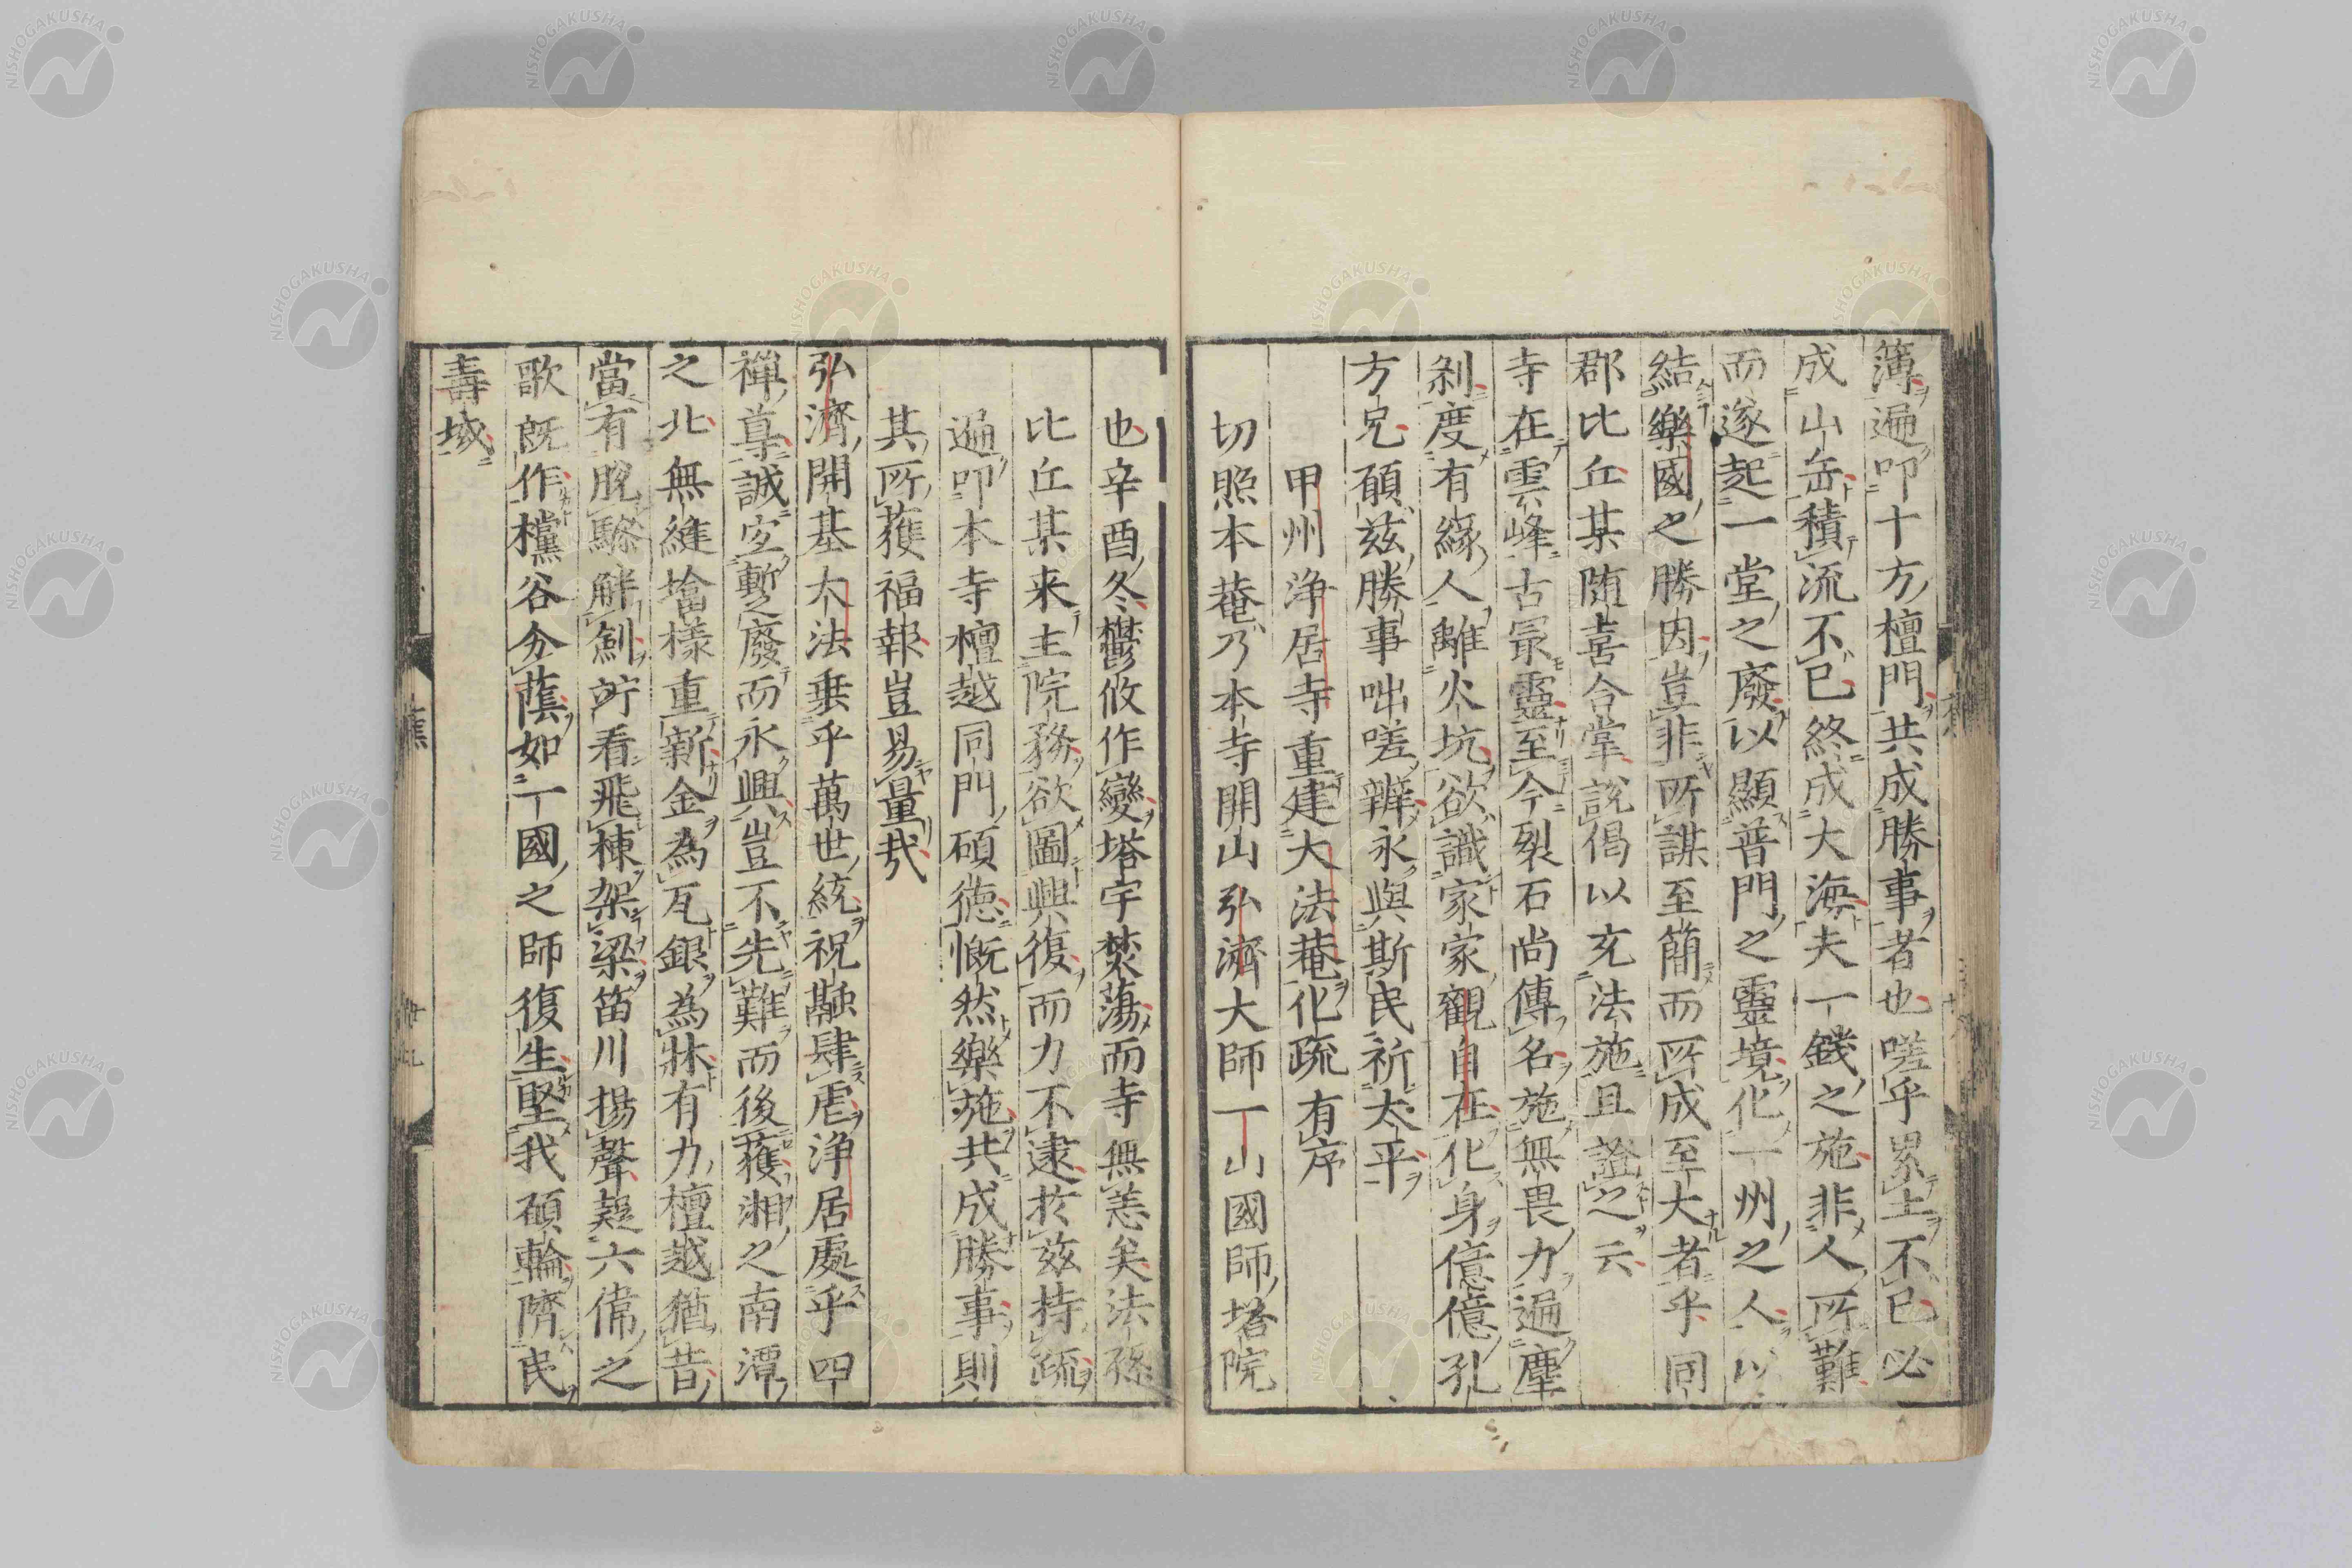 簿遍叩十方檀門共成勝事者也嗟乎累土不已必
成山岳積流不已終成大海夫一錢之施非人所難
而遂起一堂之廢以顯普門之靈境化一州之人以
結樂國之勝因豈非所謀至簡而所成至大者乎同
郡比丘某随喜合掌説偈以充法施且證之云
寺在雲峰古冣靈至今裂石尚傳名施無畏力遍塵
剎度有緣人離火坑欲識家家觀自在化身億億孔
方兄願茲勝事咄嗟辨永與斯民祈太平
甲州浄居寺重建大法菴化疏有序
切照本菴乃本寺開山弘濟大師一山國師塔院
也辛酉冬欝攸作變塔宇焚蕩而寺無恙矣法孫
比丘某来主院務欲圖興復而力不逮於茲持疏
遍叩本寺檀越同門碩徳慨然樂施共成勝事則
其所獲福報豈易量哉
弘濟開基大法垂乎萬世統祝融肆虐浄居處乎四
禅尊誠定暫之廢而永興豈不先難而後獲湘之南潭
之北無縫塔樣重新金為瓦銀為牀有力檀越猶昔
當有脱驂解劍竚看飛棟架梁笛川揚聲疑六偉之
歌既作欓谷分蔭如一國之師復生堅我碩輪隮民
壽域
NISHOGAKUSHA